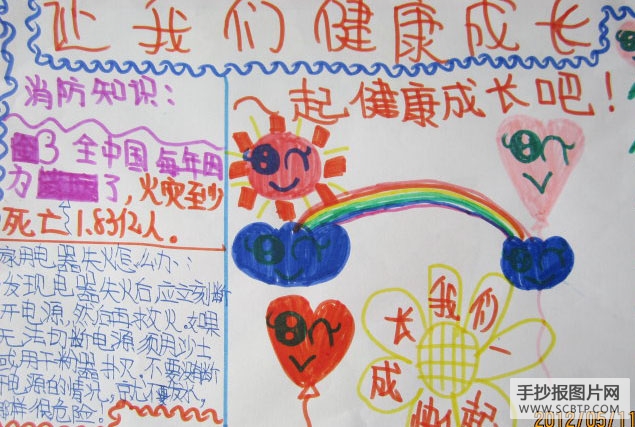 让我们健康成长
消防知识：
一起健康成长吧！
3 全中国每年因
为 了，火灾至少
死亡1.83亿人。
家用电器失火怎么办：
发现电器失火后应立刻断
开电源，然后再救火。如果
无法切断电源，须用沙土
或用干粉器扑灭。不要在断
电源的情况，
那样很危险。
我们一起
成长
手抄报图片网
WWW.SCBTP.COM
2012/05/11